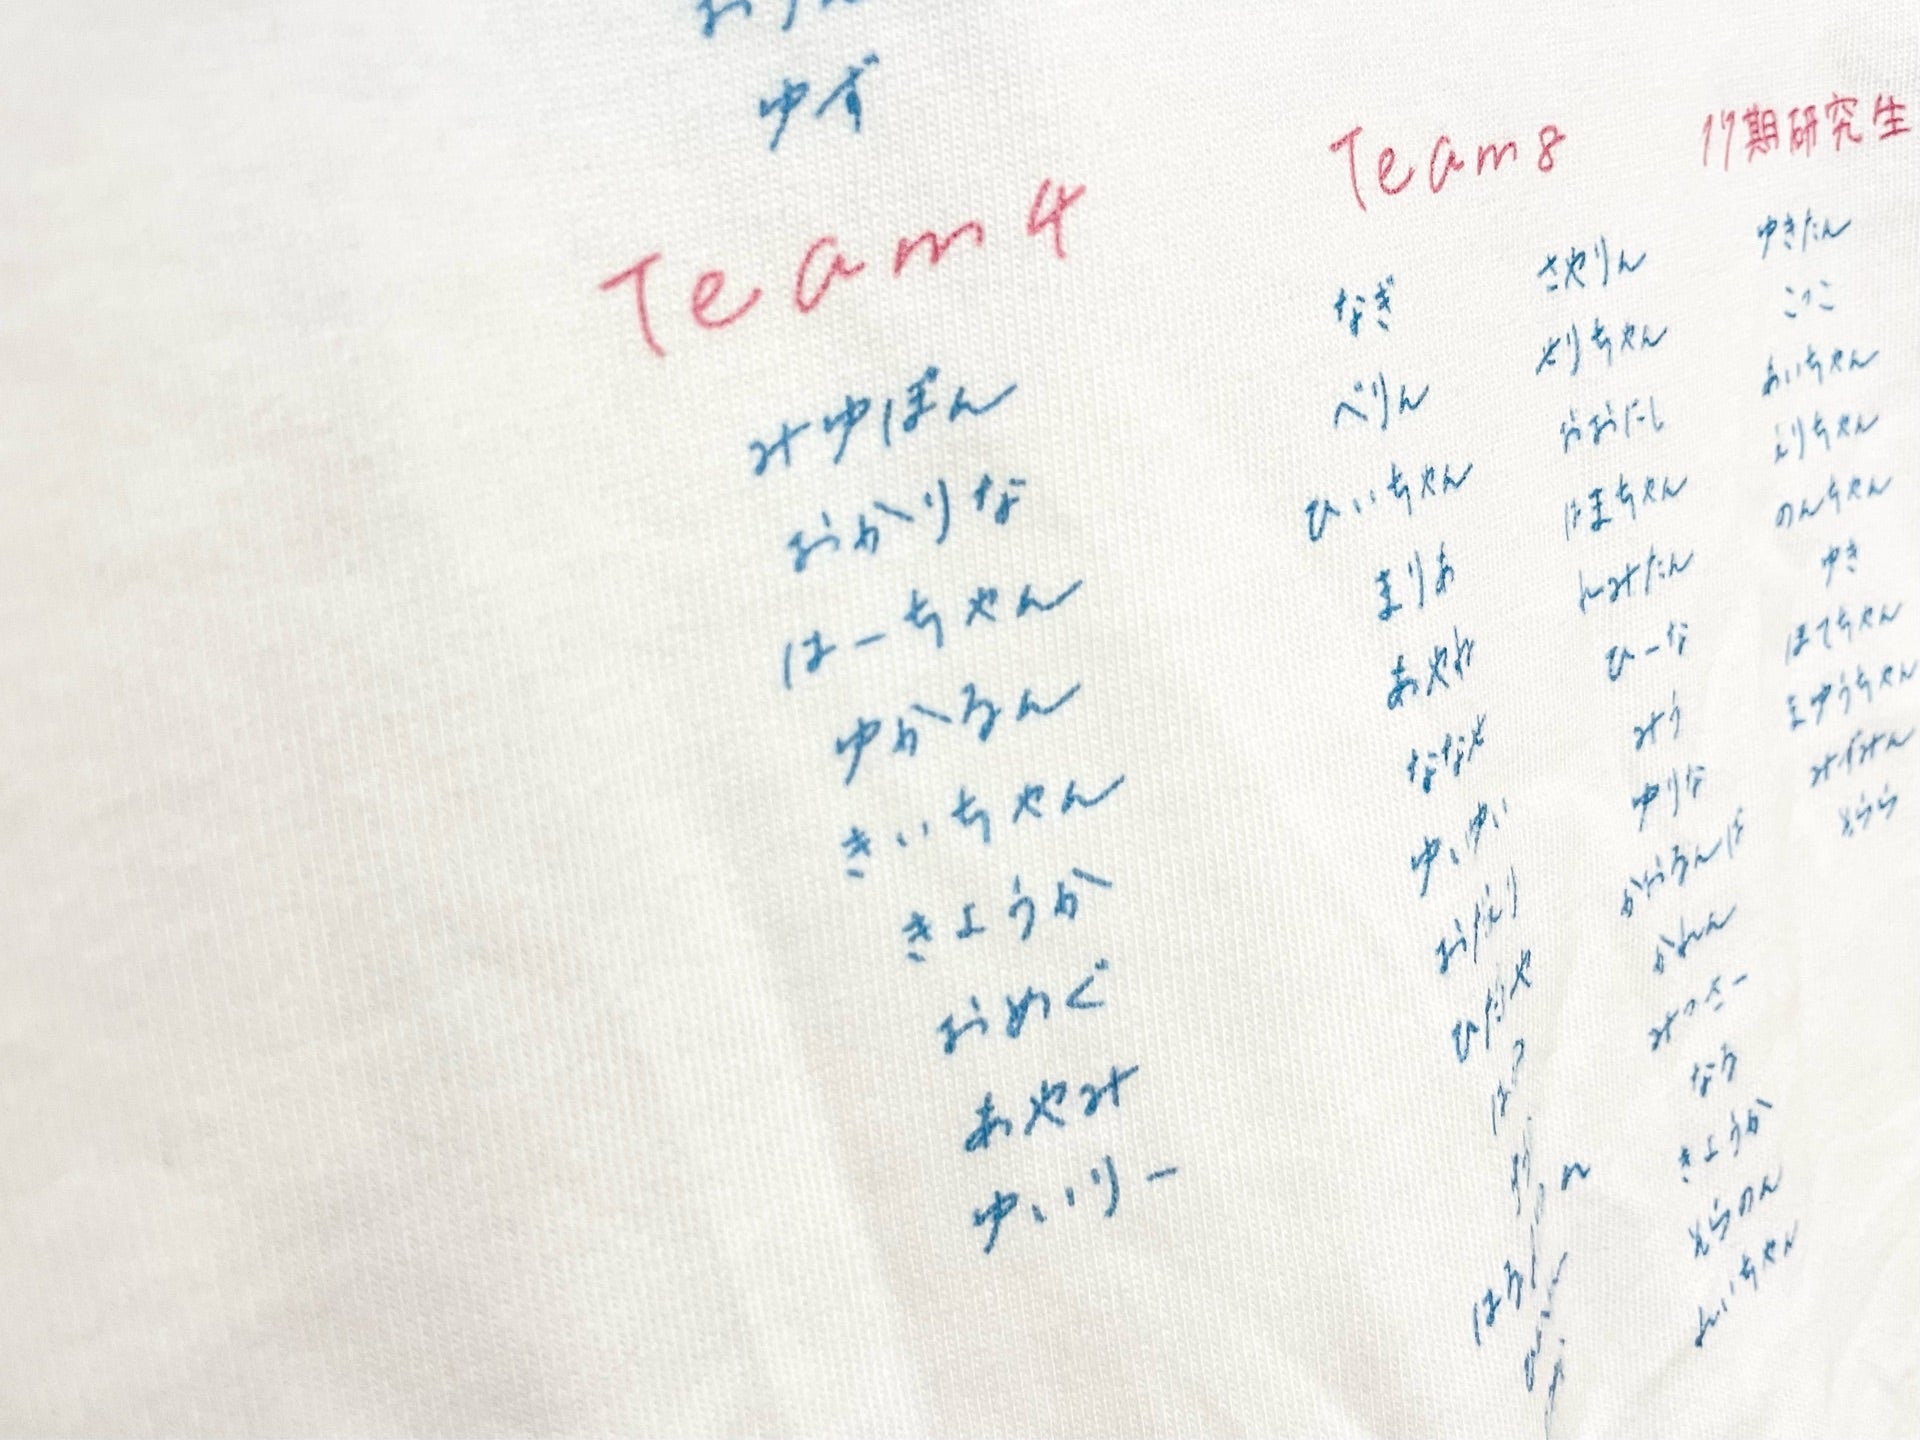 ゆず
Team 4
みゆぽん
おかりな
はーちゃん
ゆかるん
きぃちゃん
きょうか
おめぐ
あやみ
ゆいりー
Team 8
なぎ
べりん
ひぃちゃん
まりあ
あやね
ななせ
ゆいゆい
おだえり
さやりん
せりちゃん
おおにし
はまちゃん
とみたん
ひーな
みう
ゆりな
かおるんば
かれん
みっきー
なる
きょうか
そらのん
れいちゃん
17期研究生
ゆきたん
こっこ
あいちゃん
えりちゃん
のんちゃん
ゆき
ほてちゃん
まゆうちゃん
みずみん
そらら